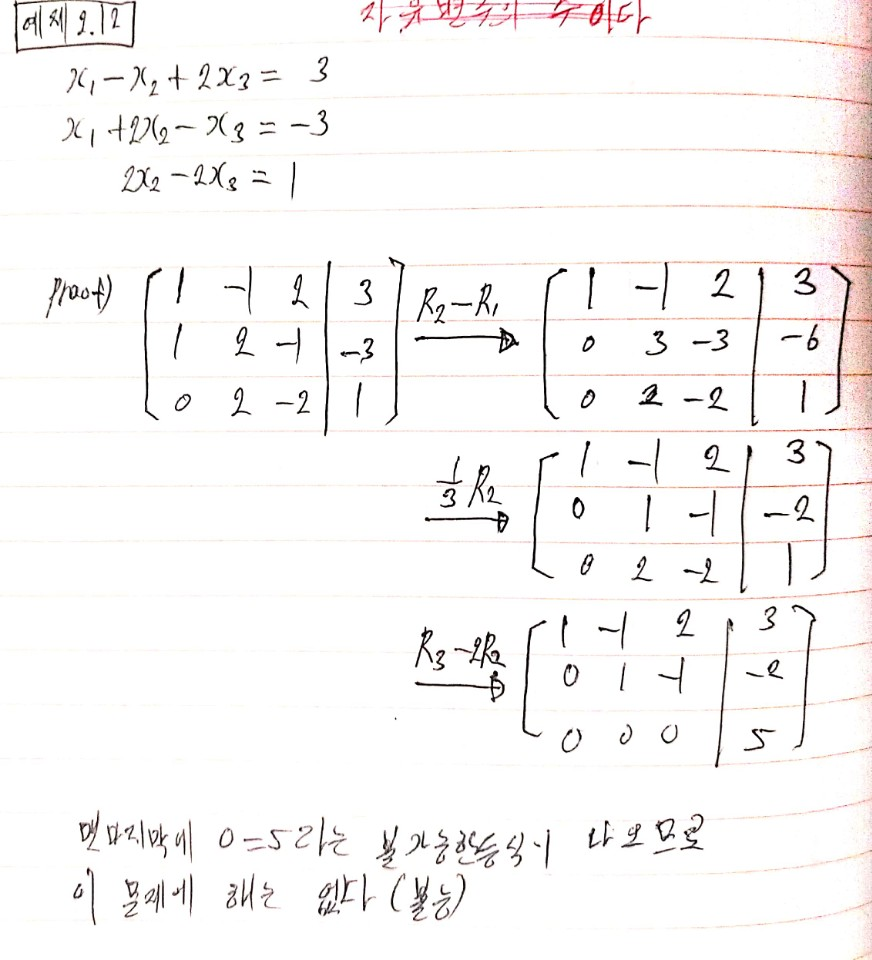 자유변수의 수이다
예제 2.12
x₁ - x₂ + 2x₃ = 3
x₁ + 2x₂ - x₃ = -3
2x₂ - 2x₃ = 1
proof) [1 -1 2 | 3] R₂-R₁ → [1 -1 2 | 3]
[1 2 -1 | -3] [0 3 -3 | -6]
[0 2 -2 | 1] [0 2 -2 | 1]
1/3 R₂ → [1 -1 2 | 3]
[0 1 -1 | -2]
[0 2 -2 | 1]
R₃-2R₂ → [1 -1 2 | 3]
[0 1 -1 | -2]
[0 0 0 | 5]
맨마지막에 0=5라는 불가능한등식이 나오므로
이 문제에 해는 없다 (불능)